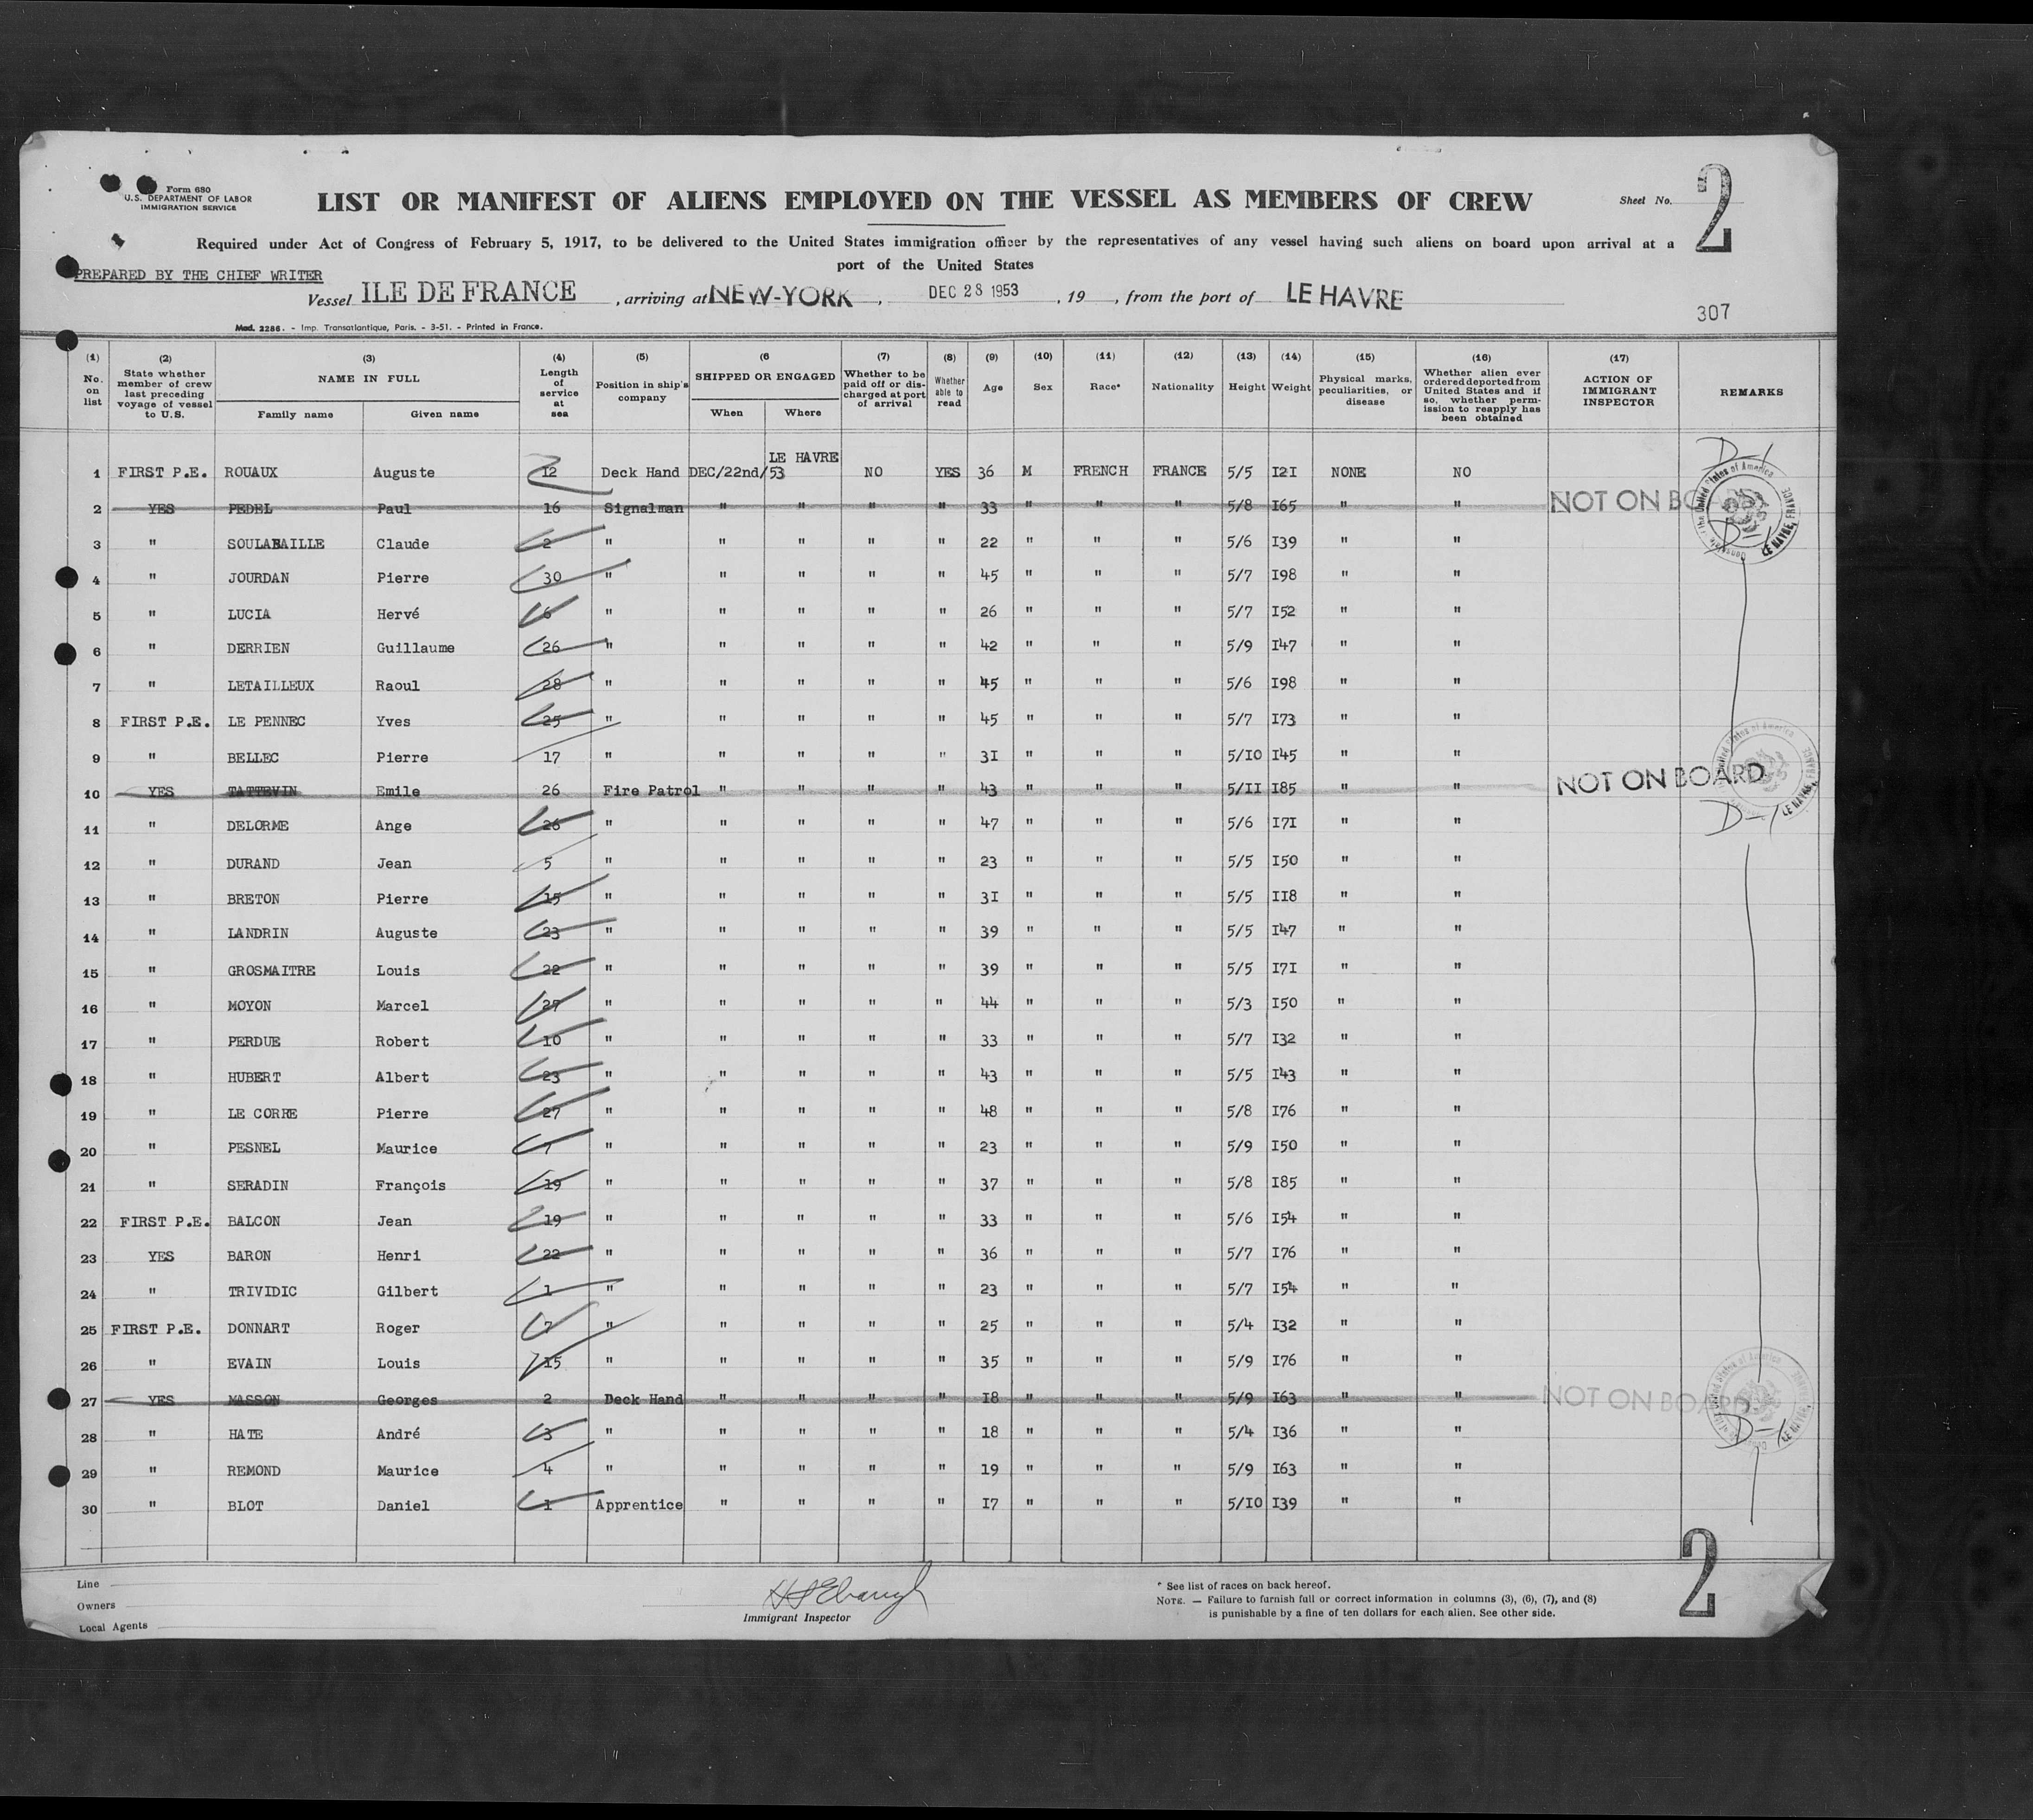 Form 680
U.S. DEPARTMENT OF LABOR
IMMIGRATION SERVICE
LIST OR MANIFEST OF ALIENS EMPLOYED ON THE VESSEL AS MEMBERS OF CREW
Sheet No. 2
Required under Act of Congress of February 5, 1917, to be delivered to the United States immigration officer by the representatives of any vessel having such aliens on board upon arrival at a
port of the United States
PREPARED BY THE CHIEF WRITER
Vessel ILE DE FRANCE , arriving at NEW-YORK , DEC 28 1953 , 19 , from the port of LE HAVRE
307
Mod. 2286. - Imp. Transatlantique, Paris. - 3-51. - Printed in France.
(1) No. on list (2) State whether member of crew last preceding voyage of vessel to U.S. (3) NAME IN FULL Family name Given name (4) Length of service at sea (5) Position in ship's company (6 SHIPPED OR ENGAGED When Where (7) Whether to be paid off or discharged at port of arrival (8) Whether able to read (9) Age (10) Sex (11) Race* (12) Nationality (13) Height (14) Weight (15) Physical marks, peculiarities, or disease (16) Whether alien ever ordered deported from United States and if so, whether permission to reapply has been obtained (17) ACTION OF IMMIGRANT INSPECTOR REMARKS
LE HAVRE D-1
1 FIRST P.E. ROUAUX Auguste 12 Deck Hand DEC/22nd/53 NO YES 36 M FRENCH FRANCE 5/5 I2I NONE NO
2 YES PEDEL Paul 16 Signalman " " " " 33 " " " 5/8 I65 " " NOT ON BOARD
3 " SOULABAILLE Claude 2 " " " " " 22 " " " 5/6 I39 " " D-1
4 " JOURDAN Pierre 30 " " " " " 45 " " " 5/7 I98 " "
5 " LUCIA Hervé 6 " " " " " 26 " " " 5/7 I52 " "
6 " DERRIEN Guillaume 26 " " " " " 42 " " " 5/9 I47 " "
7 " LETAILLEUX Raoul 28 " " " " " 45 " " " 5/6 I98 " "
8 FIRST P.E. LE PENNEC Yves 25 " " " " " 45 " " " 5/7 I73 " "
9 " BELLEC Pierre 17 " " " " " 3I " " " 5/IO I45 " "
10 YES TATTEVIN Emile 26 Fire Patrol " " " " 43 " " " 5/II I85 " " NOT ON BOARD
11 " DELORME Ange 26 " " " " " 47 " " " 5/6 I7I " " D-1
12 " DURAND Jean 5 " " " " " 23 " " " 5/5 I50 " "
13 " BRETON Pierre 15 " " " " " 3I " " " 5/5 II8 " "
14 " LANDRIN Auguste 23 " " " " " 39 " " " 5/5 I47 " "
15 " GROSMAITRE Louis 22 " " " " " 39 " " " 5/5 I7I " "
16 " MOYON Marcel 27 " " " " " 44 " " " 5/3 I50 " "
17 " PERDUE Robert 10 " " " " " 33 " " " 5/7 I32 " "
18 " HUBERT Albert 23 " " " " " 43 " " " 5/5 I43 " "
19 " LE CORRE Pierre 27 " " " " " 48 " " " 5/8 I76 " "
20 " PESNEL Maurice 7 " " " " " 23 " " " 5/9 I50 " "
21 " SERADIN François 19 " " " " " 37 " " " 5/8 I85 " "
22 FIRST P.E. BALCON Jean 19 " " " " " 33 " " " 5/6 I54 " "
23 YES BARON Henri 22 " " " " " 36 " " " 5/7 I76 " "
24 " TRIVIDIC Gilbert 1 " " " " " 23 " " " 5/7 I54 " "
25 FIRST P.E. DONNART Roger 7 " " " " " 25 " " " 5/4 I32 " "
26 " EVAIN Louis 15 " " " " " 35 " " " 5/9 I76 " "
27 YES MASSON Georges 2 Deck Hand " " " " I8 " " " 5/9 I63 " " NOT ON BOARD
28 " HATE André 3 " " " " " 18 " " " 5/4 I36 " " D-1
29 " REMOND Maurice 4 " " " " " 19 " " " 5/9 I63 " "
30 " BLOT Daniel 1 Apprentice " " " " I7 " " " 5/IO I39 " "
2
Line
Owners
Local Agents
Immigrant Inspector
* See list of races on back hereof.
NOTE. — Failure to furnish full or correct information in columns (3), (6), (7), and (8)
is punishable by a fine of ten dollars for each alien. See other side.